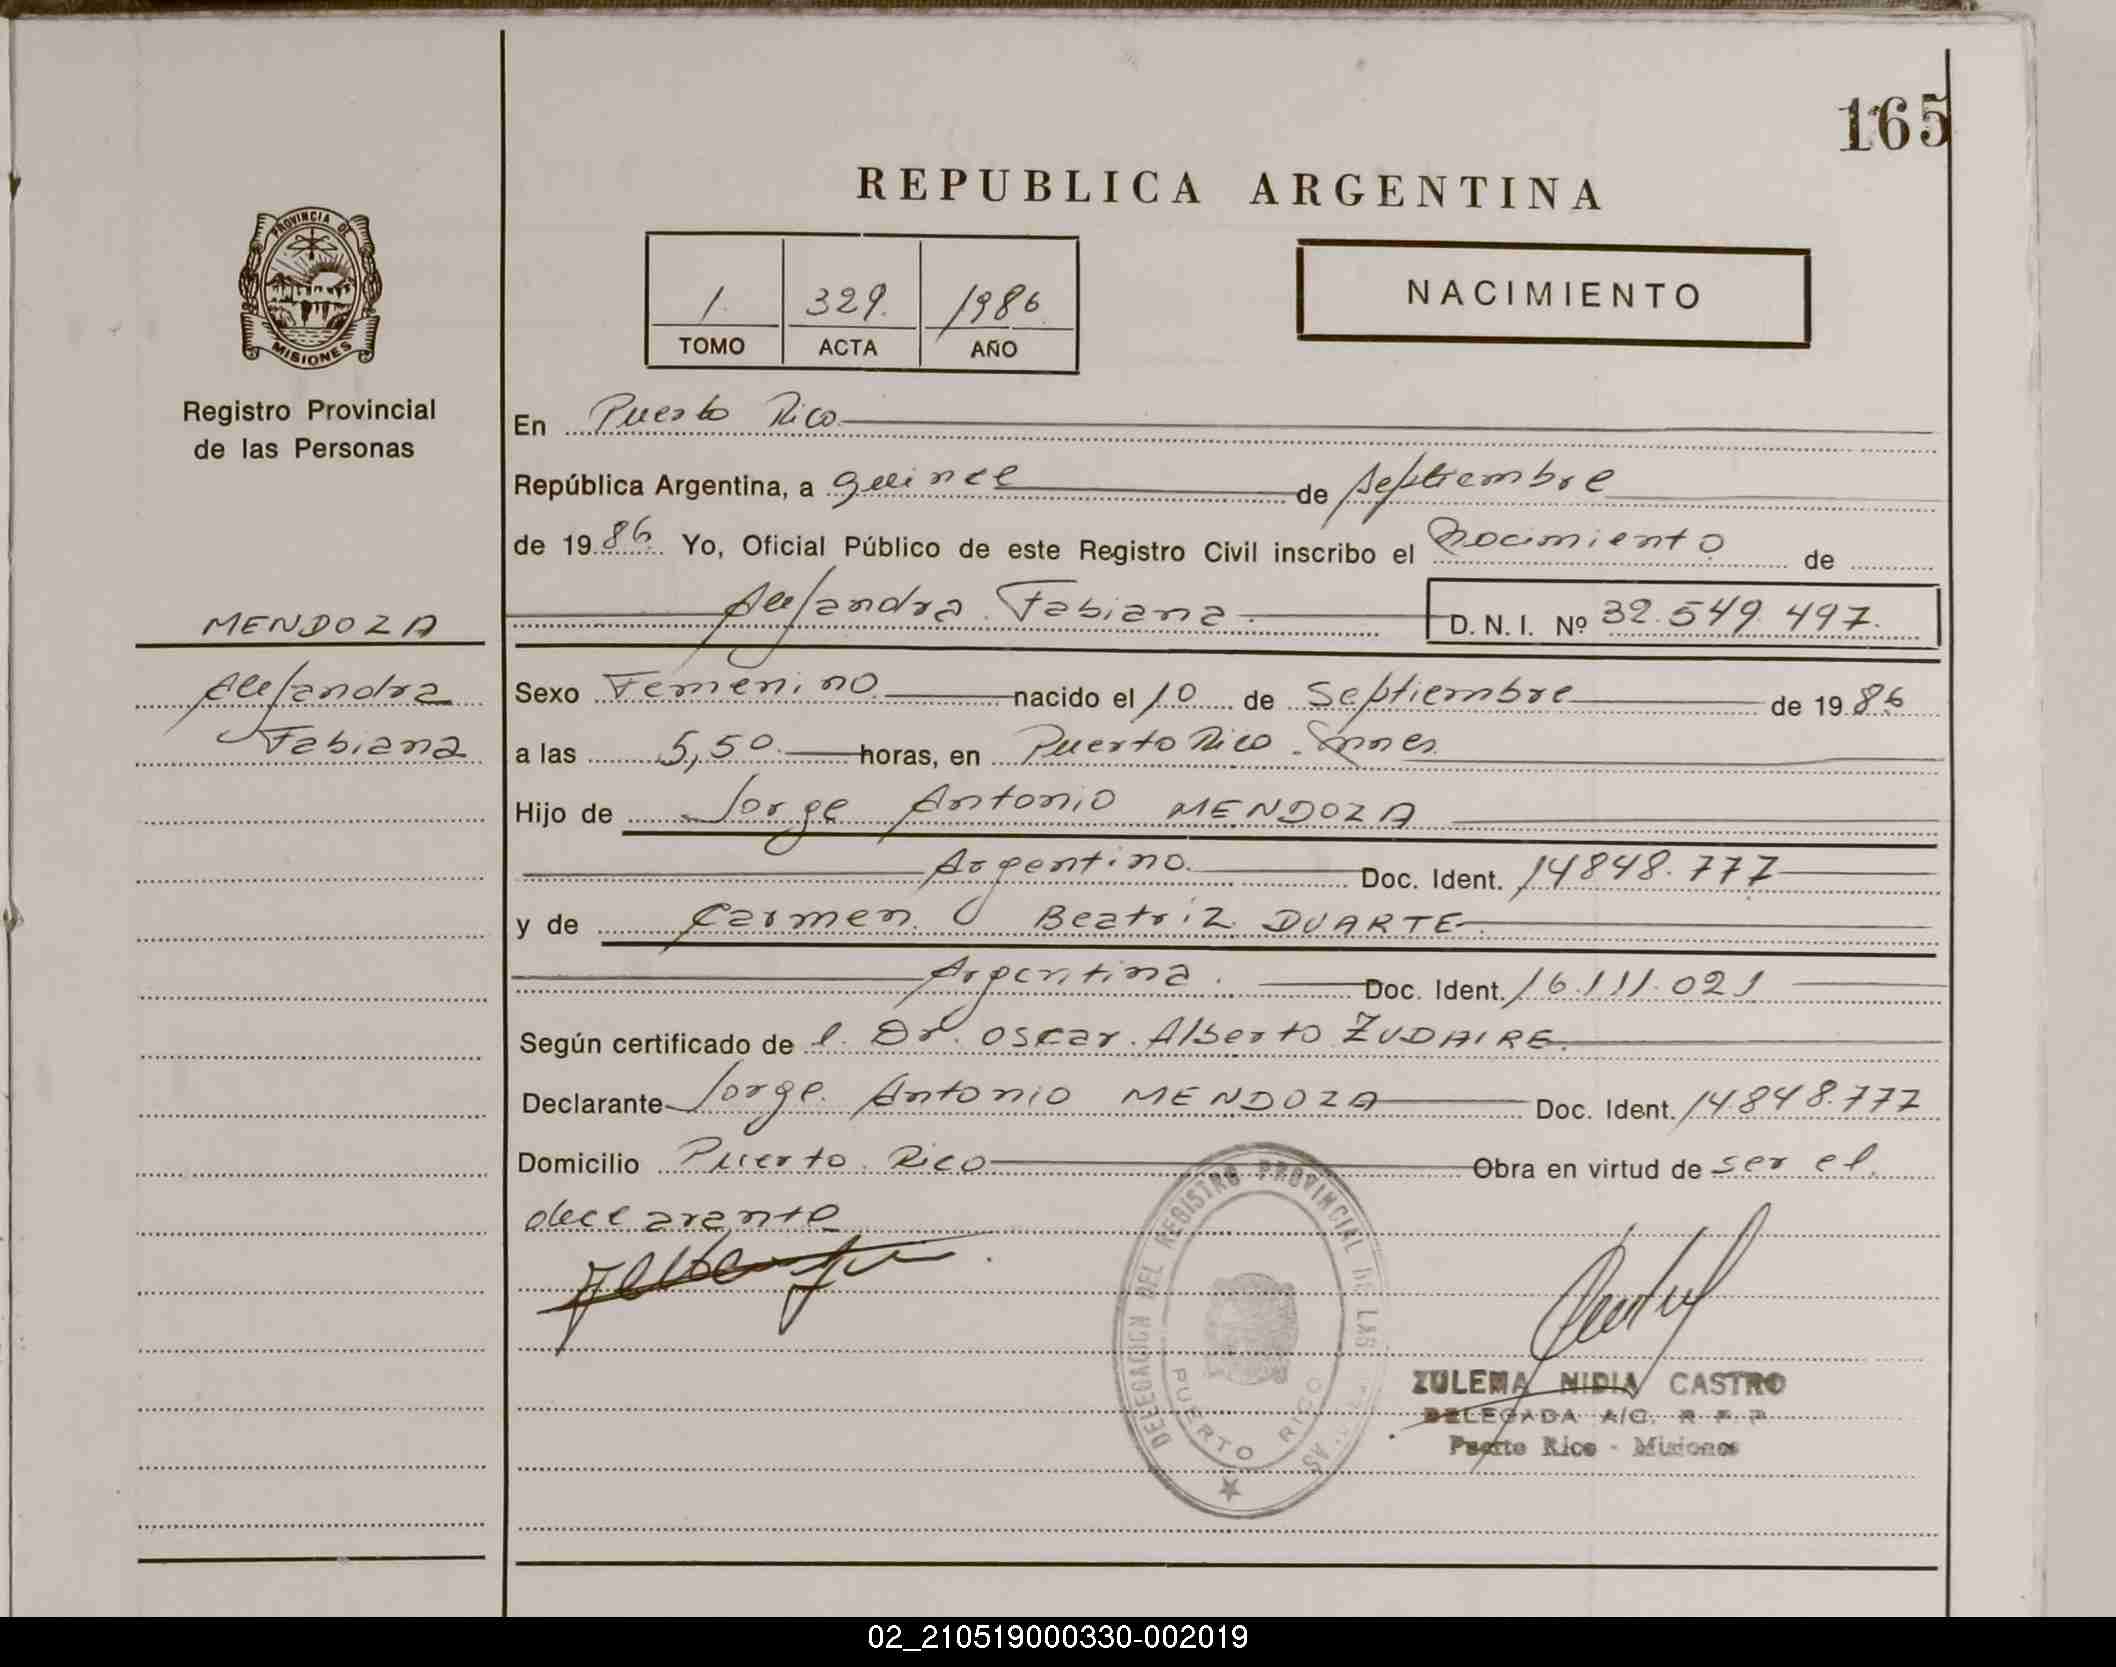 165
REPUBLICA ARGENTINA
PROVINCIA DE
MISIONES
Registro Provincial
de las Personas
1 329. 1986
TOMO ACTA AÑO
NACIMIENTO
En Puerto Rico
República Argentina, a quince de septiembre
de 1986. Yo, Oficial Público de este Registro Civil inscribo el nacimiento de
Alejandra Fabiana. D. N. I. Nº 32.549.497.
MENDOZA
Alejandra
Fabiana
Sexo Femenino nacido el 10 de Septiembre de 1986
a las 5,50 horas, en Puerto Rico.
Hijo de Jorge Antonio MENDOZA
Argentino. Doc. Ident. 14848.777
y de Carmen Beatriz DUARTE
Argentina. Doc. Ident. 16.111.021
Según certificado de l. Dr. Oscar Alberto ZUDAIRE.
Declarante Jorge Antonio MENDOZA Doc. Ident. 14.848.777
Domicilio Puerto Rico Obra en virtud de ser el
declarante
DELEGACION DEL REGISTRO PROVINCIAL DE LAS
PUERTO RICO
ZULEMA NIDIA CASTRO
DELEGADA A/C. R P P
Puerto Rico - Misiones
02_210519000330-002019